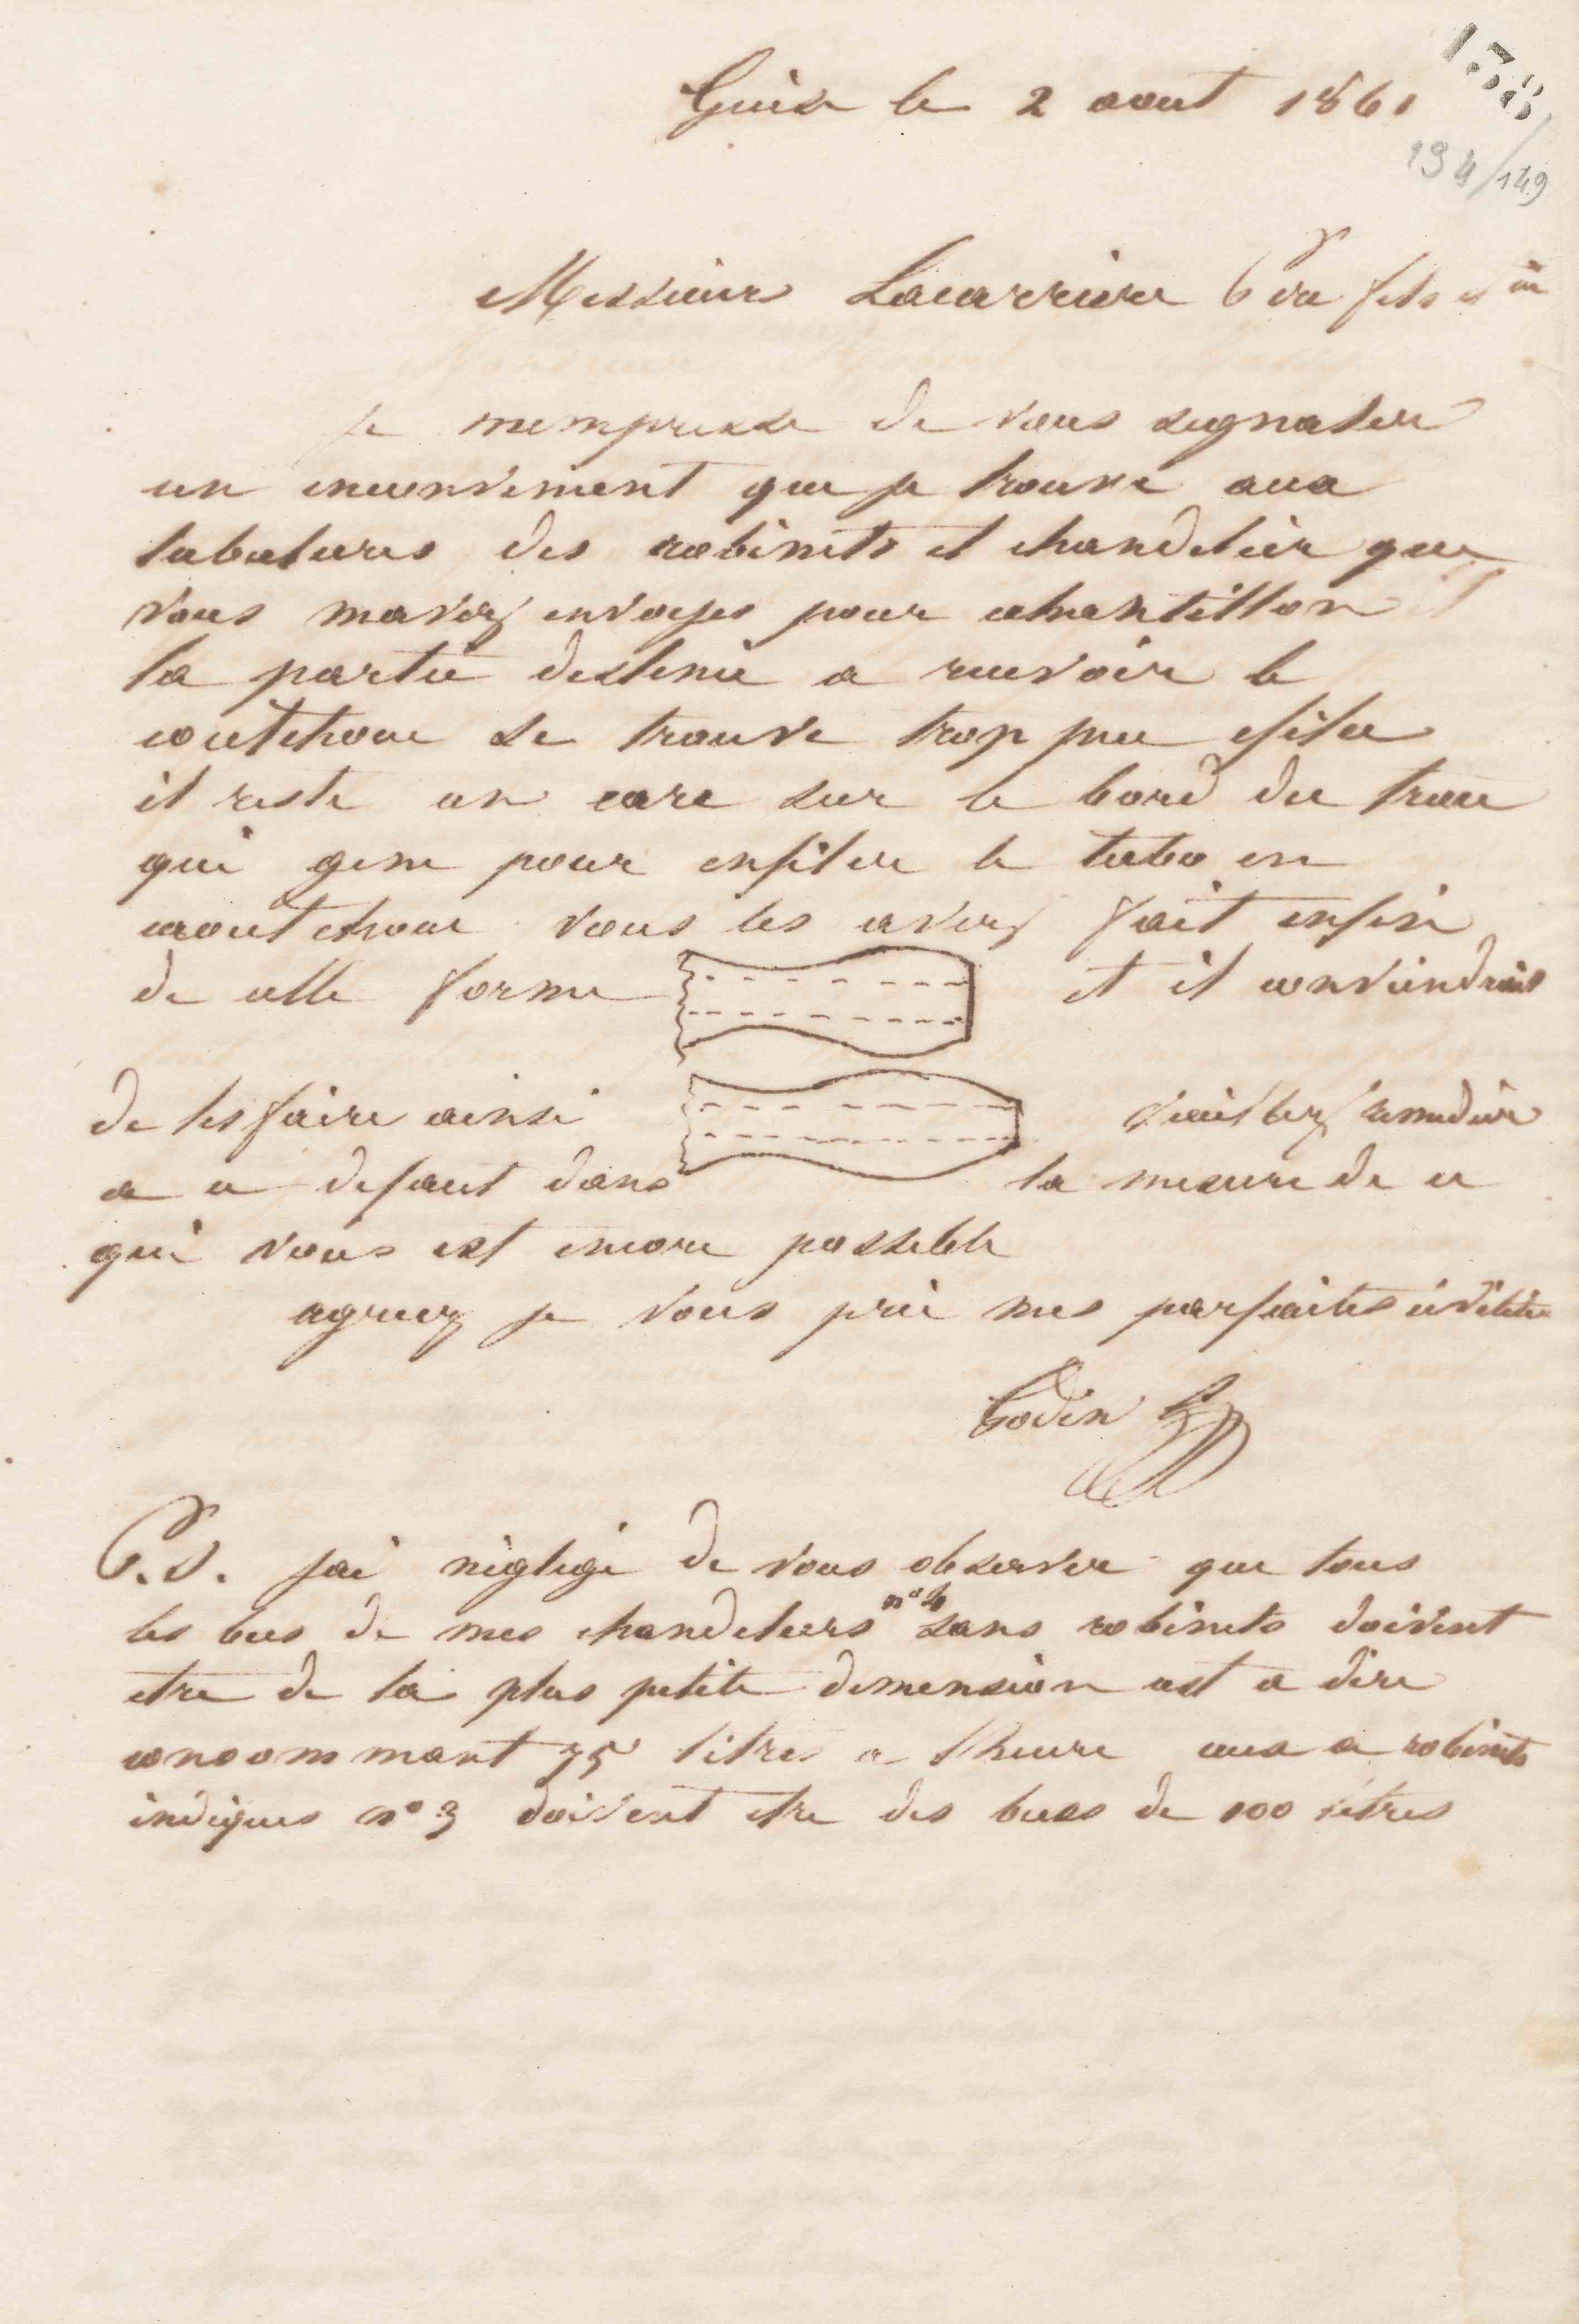 Guise le 2 aout 1861
158
194/149
Messieurs Lacarriere Père fils et cie
Je mempresse de vous signaler
un inconvenient que je trouve aux
tubulures des robinets et chandelier que
vous mavez envoyes pour echantillon
la partie destinee a recevoir le
coutchouc se trouve trop peu efilee
il reste un care sur le bord du trou
qui gene pour enfiler le tube en
caoutchouc vous les avez fait enfin
de cette forme et il conviendrait
de les faire ainsi veuillez remedier
a ce defaut dans la mesure de ce
qui vous est encore possible
agreez je vous prie mes parfaites civilites
Godin
P.S. jai négligé de vous observer que tous
les becs de mes chandeliers n° 4 sans robinets doivent
etre de la plus petite dimension cest a dire
consommant 75 litres a lheure ceux a robinets
indiques n° 3 doivent etre des becs de 100 litres